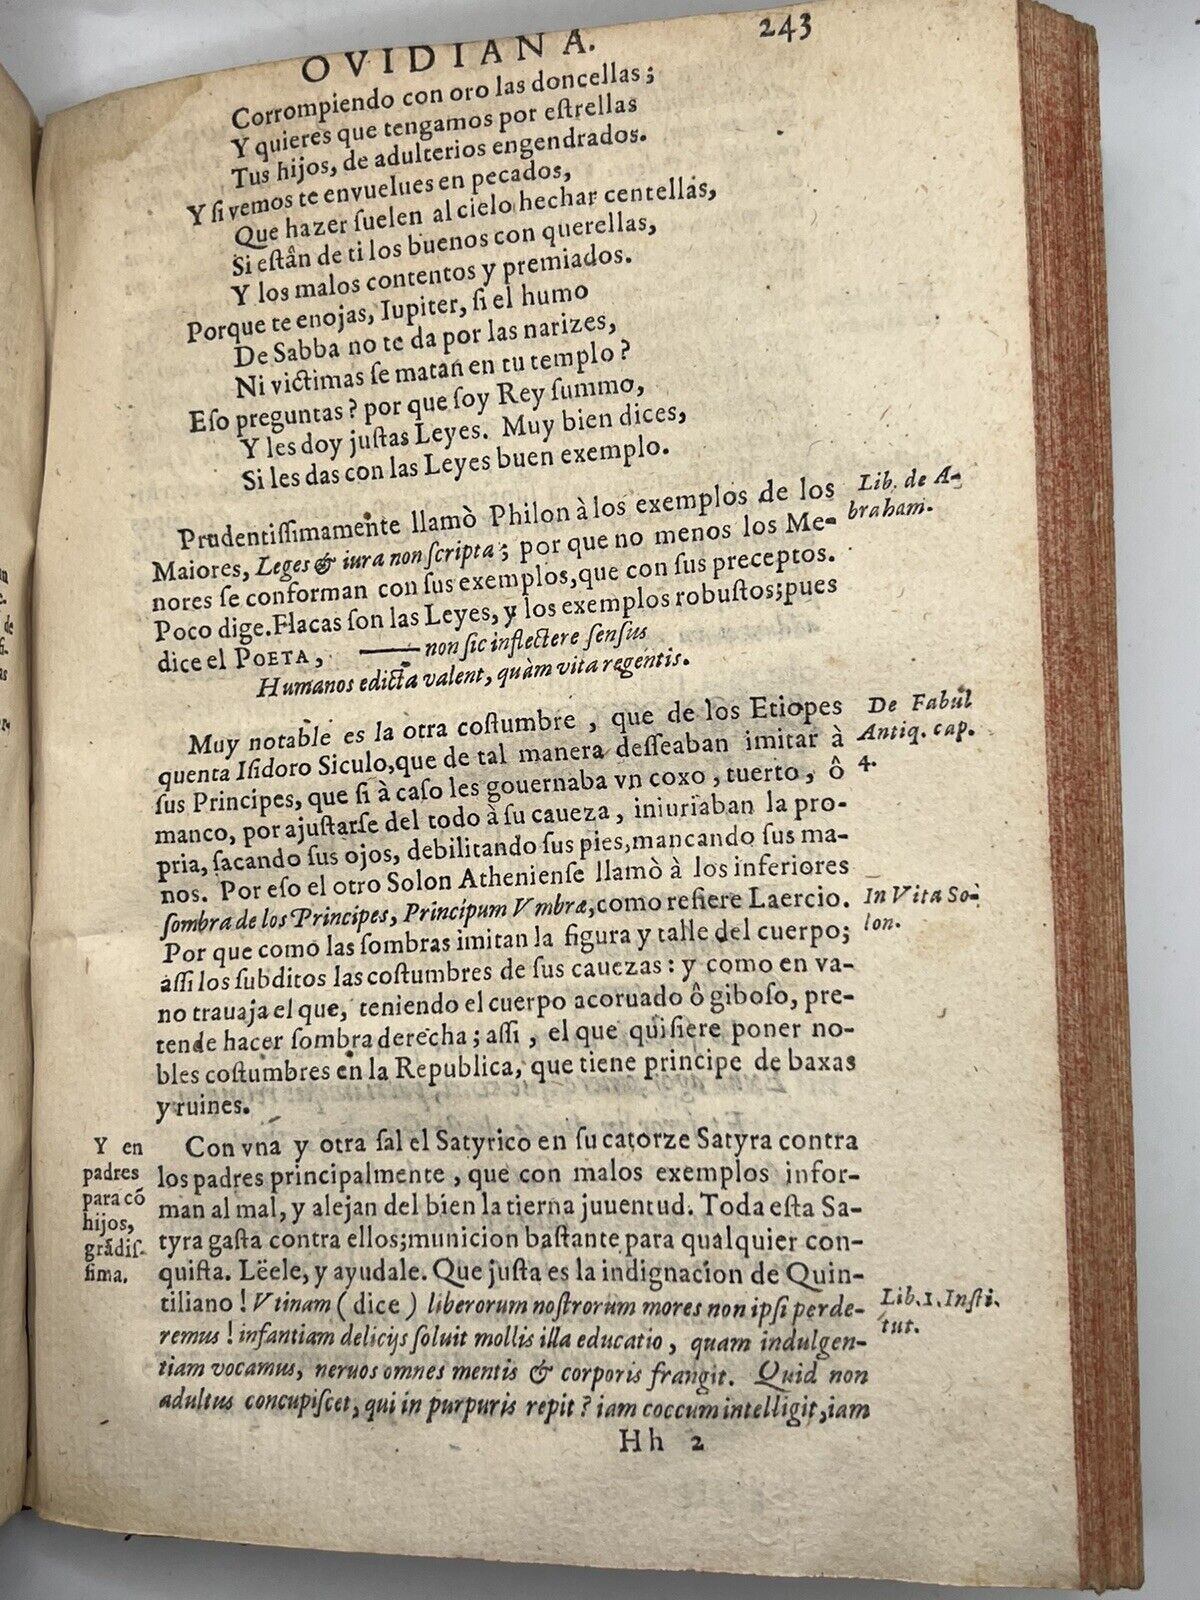 OVIDIANA.
243
Corrompiendo con oro las doncellas;
Y quieres que tengamos por eſtrellas
Tus hijos, de adulterios engendrados.
Y ſi vemos te envuelues en pecados,
Que hazer ſuelen al cielo hechar centellas,
Si eſtân de ti los buenos con querellas,
Y los malos contentos y premiados.
Porque te enojas, Iupiter, ſi el humo
De Sabba no te da por las narizes,
Ni victimas ſe matan en tu templo?
Eſo preguntas? por que ſoy Rey ſummo,
Y les doy juſtas Leyes. Muy bien dices,
Si les das con las Leyes buen exemplo.
Prudentiſſimamente llamò Philon à los exemplos de los
Maiores, Leges & iura non ſcripta; por que no menos los Me-
nores ſe conforman con ſus exemplos, que con ſus preceptos.
Poco dige. Flacas ſon las Leyes, y los exemplos robuſtos; pues
dice el POETA, —— non ſic inflectere ſenſus
Humanos edicta valent, quàm vita regentis.
Lib. de A-
braham.
Muy notable es la otra coſtumbre, que de los Etiopes
quenta Iſidoro Siculo, que de tal manera deſſeaban imitar à
ſus Principes, que ſi à caſo les gouernaba vn coxo, tuerto, ô
manco, por ajuſtarſe del todo à ſu caueza, iniuriaban la pro-
pria, ſacando ſus ojos, debilitando ſus pies, mancando ſus ma-
nos. Por eſo el otro Solon Athenienſe llamò à los inferiores
ſombra de los Principes, Principum Vmbræ, como refiere Laercio.
Por que como las ſombras imitan la figura y talle del cuerpo;
aſſi los ſubditos las coſtumbres de ſus cauezas: y como en va-
no trauaja el que, teniendo el cuerpo acoruado ô giboſo, pre-
tende hacer ſombra derecha; aſſi, el que quiſiere poner no-
bles coſtumbres en la Republica, que tiene principe de baxas
y ruines.
De Fabul
Antiq. cap.
4.
In Vita So-
lon.
Con vna y otra ſal el Satyrico en ſu catorze Satyra contra
los padres principalmente, que con malos exemplos infor-
man al mal, y alejan del bien la tierna juuentud. Toda eſta Sa-
tyra gaſta contra ellos; municion baſtante para qualquier con-
quiſta. Lëele, y ayudale. Que juſta es la indignacion de Quin-
tiliano! Vtinam (dice) liberorum noſtrorum mores non ipſi perde-
remus! infantiam delicijs ſoluit mollis illa educatio, quam indulgen-
tiam vocamus, neruos omnes mentis & corporis frangit. Quid non
adultus concupiſcet, qui in purpuris repit? iam coccum intelligit, iam
Y en
padres
para cõ
hijos,
grãdiſ-
ſima.
Lib. 1. Inſti.
tut.
Hh 2